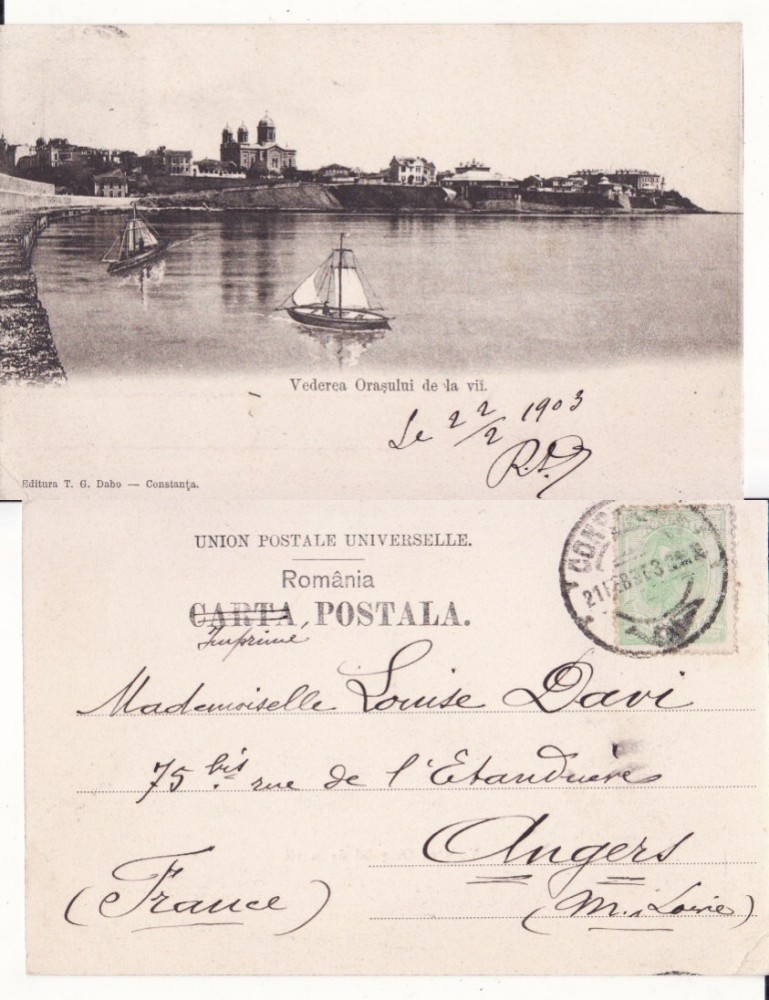 Vederea Orașului de la vii.
Le 22/2 1903
R.D.
Editura T. G. Dabo — Constanța.
UNION POSTALE UNIVERSELLE.
România
CARTA POSTALA.
Imprimé
Mademoiselle Louise Davi
75 bis rue de l'Etanduère
Angers
(France)
(M. Loire)